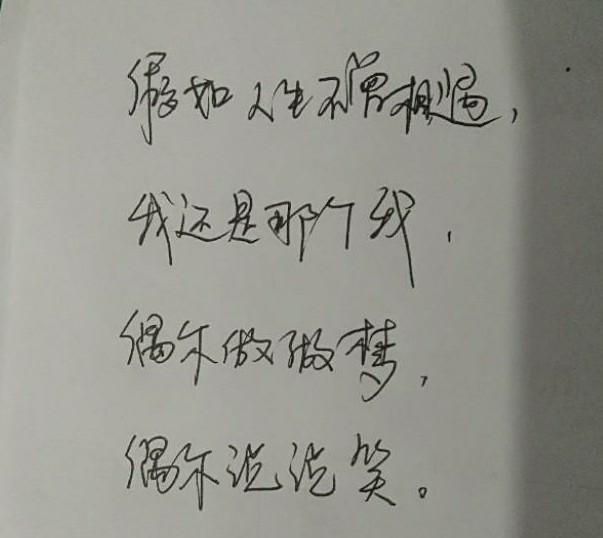 假如人生不曾相遇，
我还是那个我，
偶尔做做梦，
偶尔说说笑。